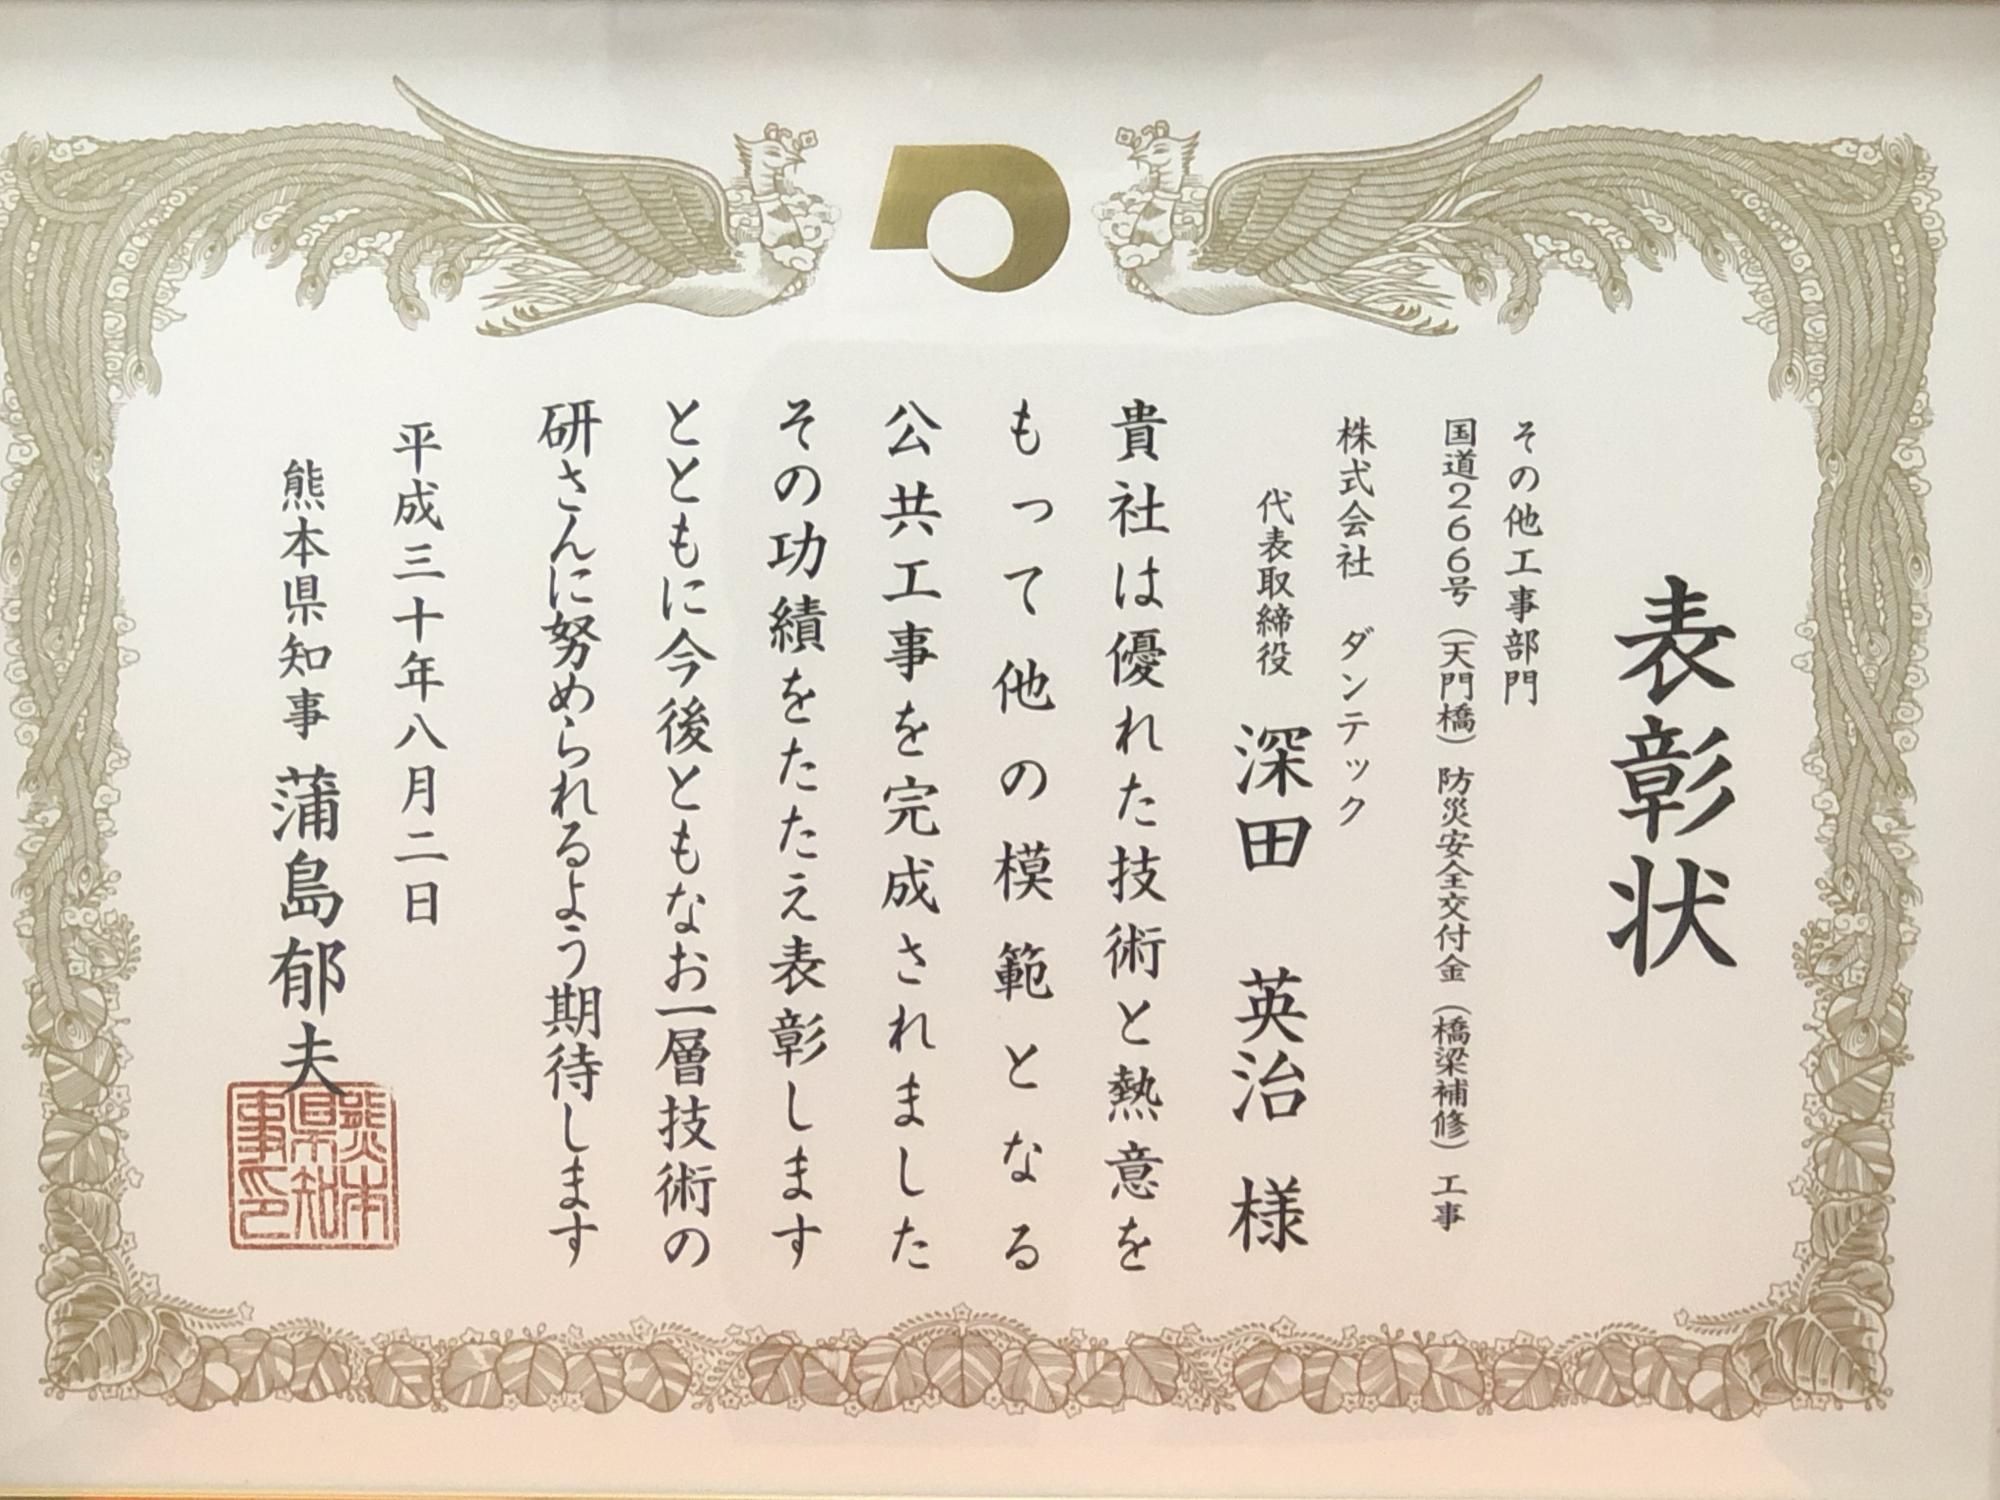 表彰状
その他工事部門
国道266号（天門橋）防災安全交付金（橋梁補修）工事
株式会社 ダンテック
代表取締役 深田 英治 様
貴社は優れた技術と熱意を
もって他の模範となる
公共工事を完成されました
その功績をたたえ表彰します
とともに今後ともなお一層技術の
研さんに努められるよう期待します
平成三十年八月二日
熊本県知事 蒲島郁夫
熊本県知事印